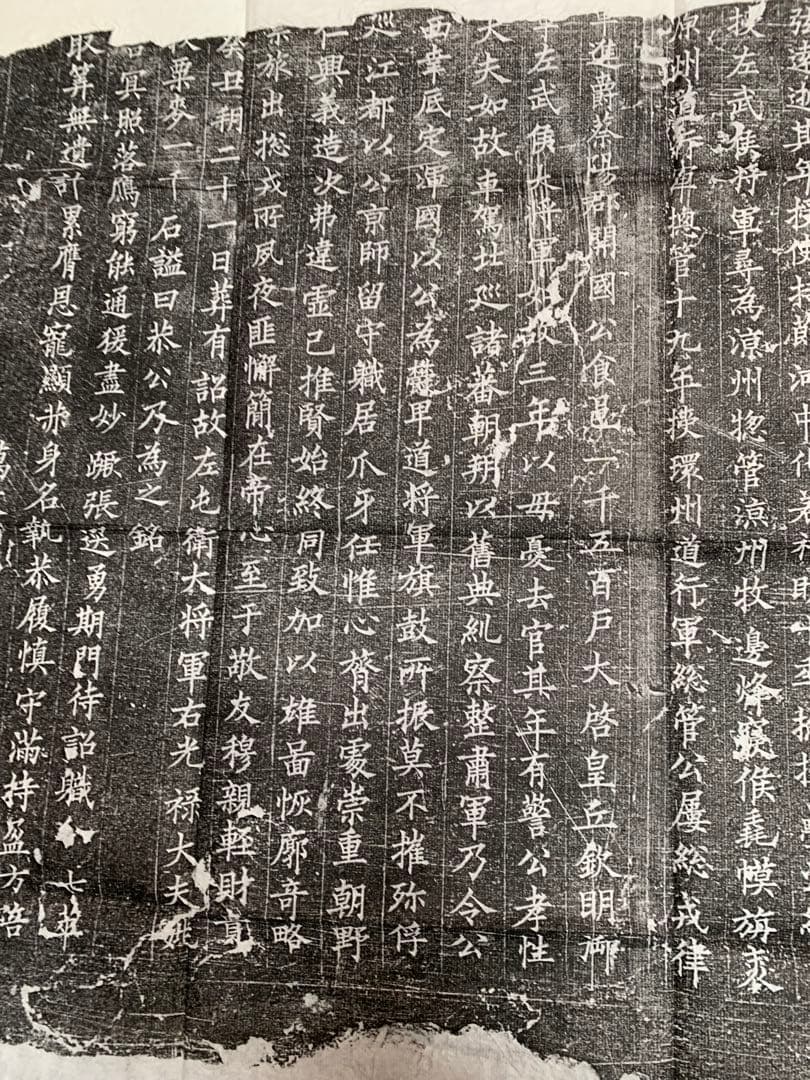 授左武候將軍尋為涼州惣管涼州牧邊烽寢候毳幙旃裘
原州道行軍揔管十九年授環州道行軍総管公屢総戎律
年進爵蔡陽郡開國公食邑一千五百戶大啓皇丘欽明御
左武侯大將軍如故三年以母憂去官其年有警公孝性
大夫如故車駕北巡諸蕃朝朔以舊典糺察整肅軍乃令公
西幸底定渾國以公為甲道將軍旗鼓所振莫不摧殄俘
巡江都以公京師留守軄居爪牙任惟心膂出處崇重朝野
仁興義造次弗違虛己推賢始終同致加以雄啚恢廓奇略
旅出捴戎所夙夜匪懈簡在帝心至于敬友穆親輕財貴
癸丑朔二十一日葬有詔故左屯衛大將軍右光祿大夫姚
粟麥一千石謚曰恭公乃為之銘
冥照落鴈窮能通猨盡妙蹶張選勇期門待詔軄七萃
取筭無遺計累膺恩寵顯赤身名執恭履慎守滿持盈方啓
萬